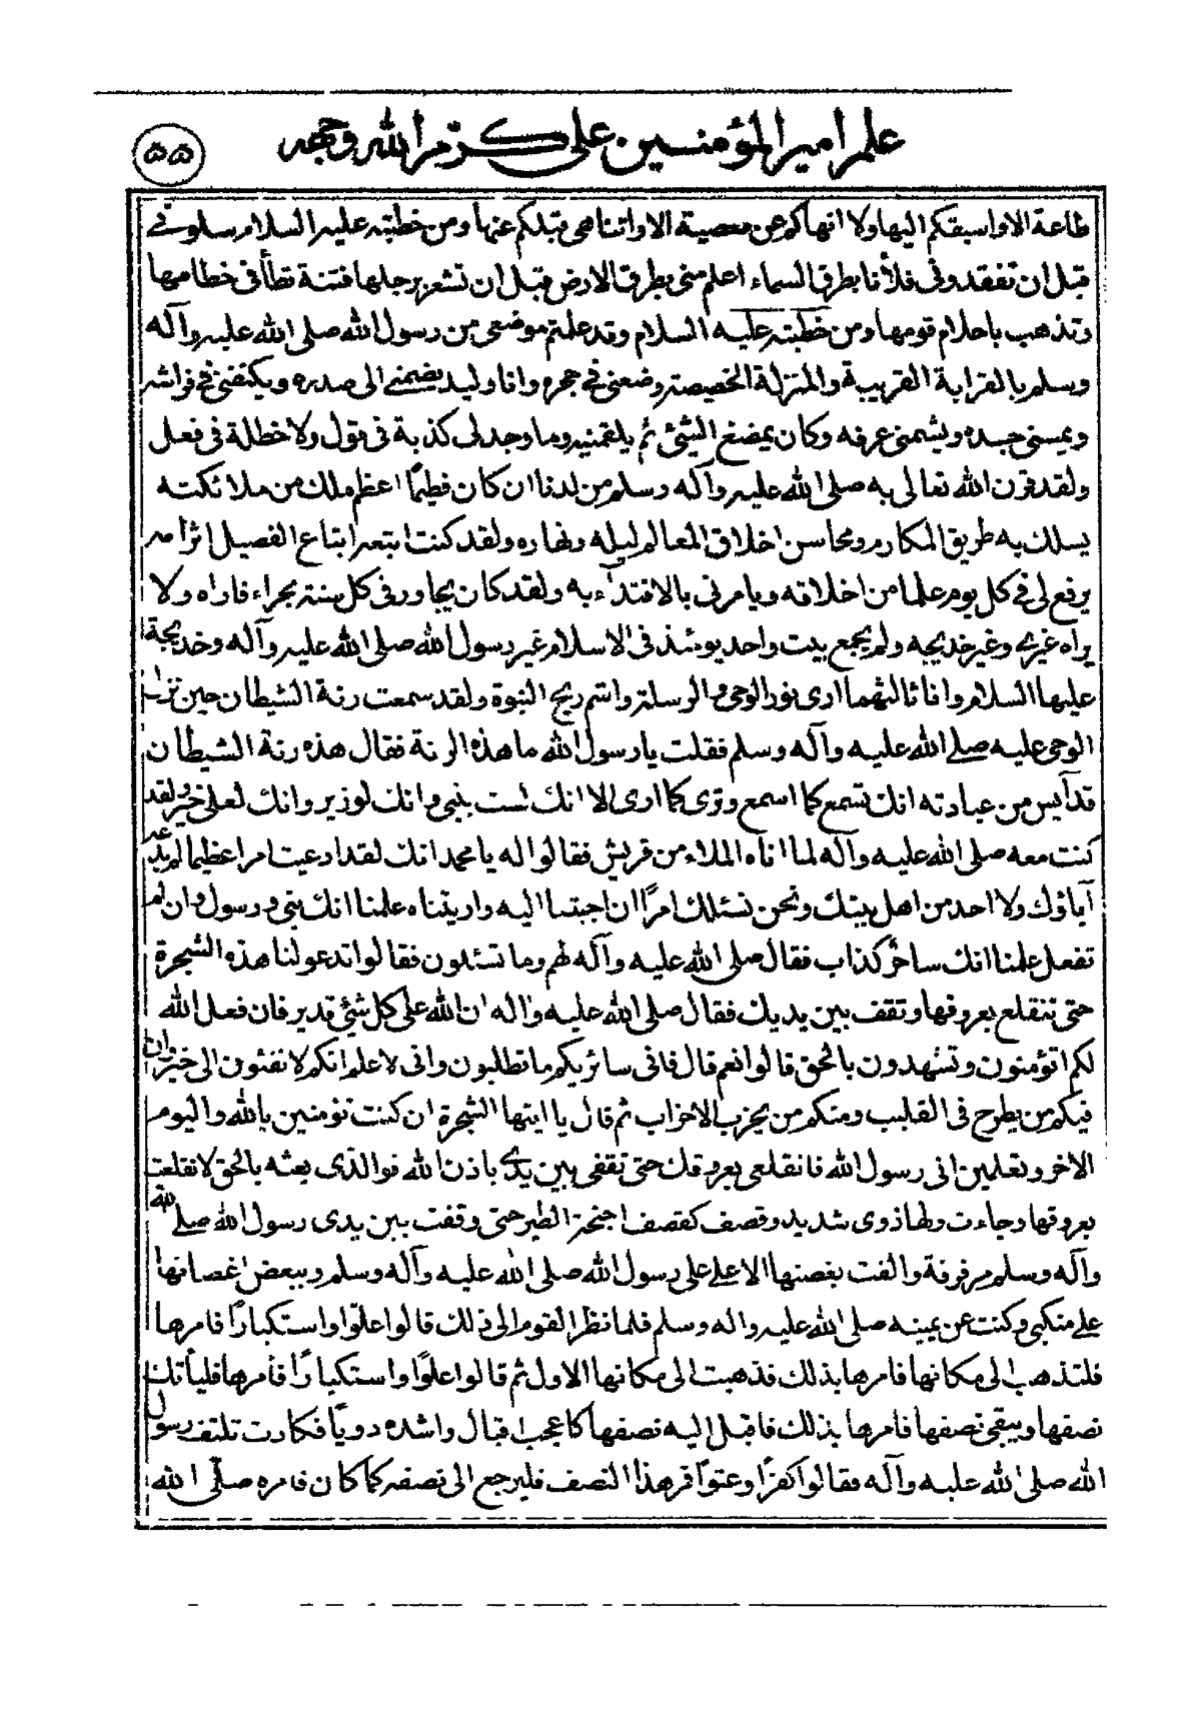 علم امير المؤمنين على كرّم الله وجهه
٥٥
طاعة الا واسبقكم اليها ولا انهاكم عن معصية الا واتناهى قبلكم عنها ومن خطبته عليه السلام سلونى
قبل ان تفقدونى فلأنا بطرق السماء اعلم منى بطرق الارض قبل ان تشغر برجلها فتنة تطأ فى خطامها
وتذهب باحلام قومها ومن خطبته عليه السلام وقد علمتم موضعى من رسول الله صلى الله عليه وآله
وسلم بالقرابة القريبة والمنزلة الخصيصة وضعنى فى حجره وانا وليد يضمنى الى صدره ويكنفنى فى فراشه
ويمسنى جسده ويشمنى عرفه وكان يمضغ الشئ ثم يلقمنيه وما وجد لى كذبة فى قول ولا خطلة فى فعل
ولقد قرن الله تعالى به صلى الله عليه وآله وسلم من لدن ان كان فطيمًا اعظم ملك من ملائكته
يسلك به طريق المكارم ومحاسن اخلاق المعالم ليله ونهاره ولقد كنت اتبعه اتباع الفصيل اثر امه
يرفع لى فى كل يوم علما من اخلاقه ويامرنى بالاقتدآء به ولقد كان يجاور فى كل سنة بحراء فاراه ولا
يراه غيرى وغير خديجه ولم يجمع بيت واحد يومئذ فى الاسلام غير رسول الله صلى الله عليه وآله وخديجة
عليها السلام وانا ثالثهما ارى نور الوحى والرسلة واشم ريح النبوة ولقد سمعت رنة الشيطان حين نزل
الوحى عليه صلى الله عليه وآله وسلم فقلت يا رسول الله ما هذه الرنة فقال هذه رنة الشيطان
قد أيس من عبادته انك تسمع كما اسمع وترى كما ارى الا انك لست بنبى وانك لوزير وانك لعلى خير ولقد
كنت معه صلى الله عليه وآله لما اتاه الملاء من قريش فقالوا له يا محمد انك لقد ادعيت امرا عظيما لم يدعه
آباؤك ولا احد من اهل بيتك ونحن نسئلك امرًا ان اجبتنا اليه واريتناه علمنا انك نبى ورسول وان لم
تفعل علمنا انك ساحرٌ كذاب فقال صلى الله عليه وآله لهم وما تسئلون فقالوا تدعو لنا هذه الشجرة
حتى تنقلع بعروقها وتقف بين يديك فقال صلى الله عليه واله ان الله على كل شئ قدير فان فعل الله
لكم اتؤمنون وتشهدون بالحق قالوا نعم قال فانى ساريكم ما تطلبون وانى لاعلم انكم لا تفئون الى خير وان
فيكم من يطرح فى القليب ومنكم من يحزب الاحزاب ثم قال يا ايتها الشجرة ان كنت تؤمنين بالله واليوم
الاخر وتعلمين انى رسول الله فانقلعى بعروقك حتى تقفى بين يدى باذن الله فوالذى بعثه بالحق لانقلعت
بعروقها وجاءت ولها دوى شديد وقصف كقصف اجنحة الطير حتى وقفت بين يدى رسول الله صلى الله
وآله وسلم مرفرفة والقت بغصنها الاعلى على رسول الله صلى الله عليه وآله وسلم وببعض اغصانها
على منكبى وكنت عن يمينه صلى الله عليه واله وسلم فلما نظر القوم الى ذلك قالوا علوّا واستكبارًا فامرها
فلتذهب الى مكانها فامرها بذلك فذهبت الى مكانها الاول ثم قالوا علوًا واستكبارًا فأمرها فليأتك
نصفها ويبقى نصفها فامرها بذلك فاقبل اليه نصفها كاعجب اقبال واشده دويًا فكادت تلتف رسول
الله صلى الله عليه وآله فقالوا كفرًا وعتوًا فمر هذا النصف فليرجع الى نصفه كما كان فامره صلّى الله